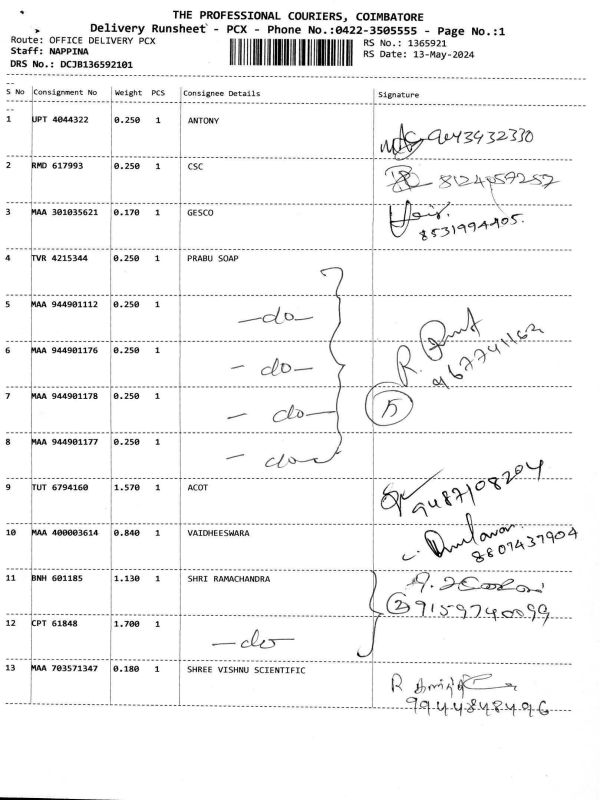 THE PROFESSIONAL COURIERS, COIMBATORE
Delivery Runsheet - PCX - Phone No.:0422-3505555 - Page No.:1
Route: OFFICE DELIVERY PCX
RS No.: 1365921
Staff: NAPPINA
RS Date: 13-May-2024
DRS No.: DCJB136592101
S No Consignment No Weight PCS Consignee Details Signature
1 UPT 4044322 0.250 1 ANTONY
9043432330
2 RMD 617993 0.250 1 CSC
3 MAA 301035621 0.170 1 GESCO
8531994405.
4 TVR 4215344 0.250 1 PRABU SOAP
5 MAA 944901112 0.250 1 -do-
6 MAA 944901176 0.250 1 -do-
7 MAA 944901178 0.250 1 -do-
5
8 MAA 944901177 0.250 1 -do-
9 TUT 6794160 1.570 1 ACOT
9487108204
10 MAA 400003614 0.840 1 VAIDHEESWARA
8807437904
11 BNH 601185 1.130 1 SHRI RAMACHANDRA
2 9159740099
12 CPT 61848 1.700 1 -do-
13 MAA 703571347 0.180 1 SHREE VISHNU SCIENTIFIC
R
9944848496